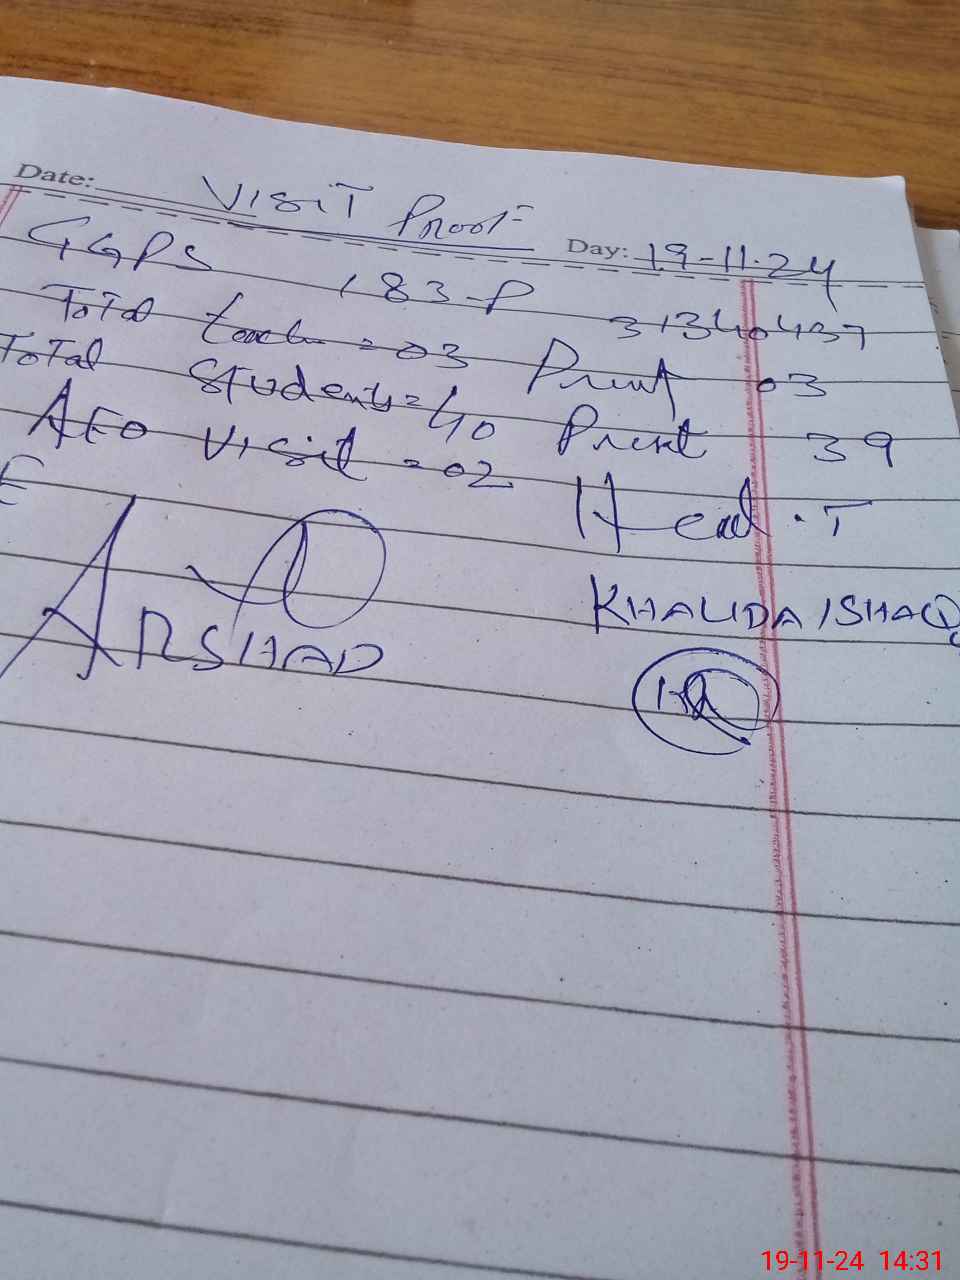 Date: VISIT Proof
Day: 19-11-24
GGPS 183-P 31340437
Total teach = 03 Prent 03
Total Students = 40 Prent 39
AEO visit = 02
Head. T
ARSHAD
KHALIDA ISHAQ
19-11-24 14:31